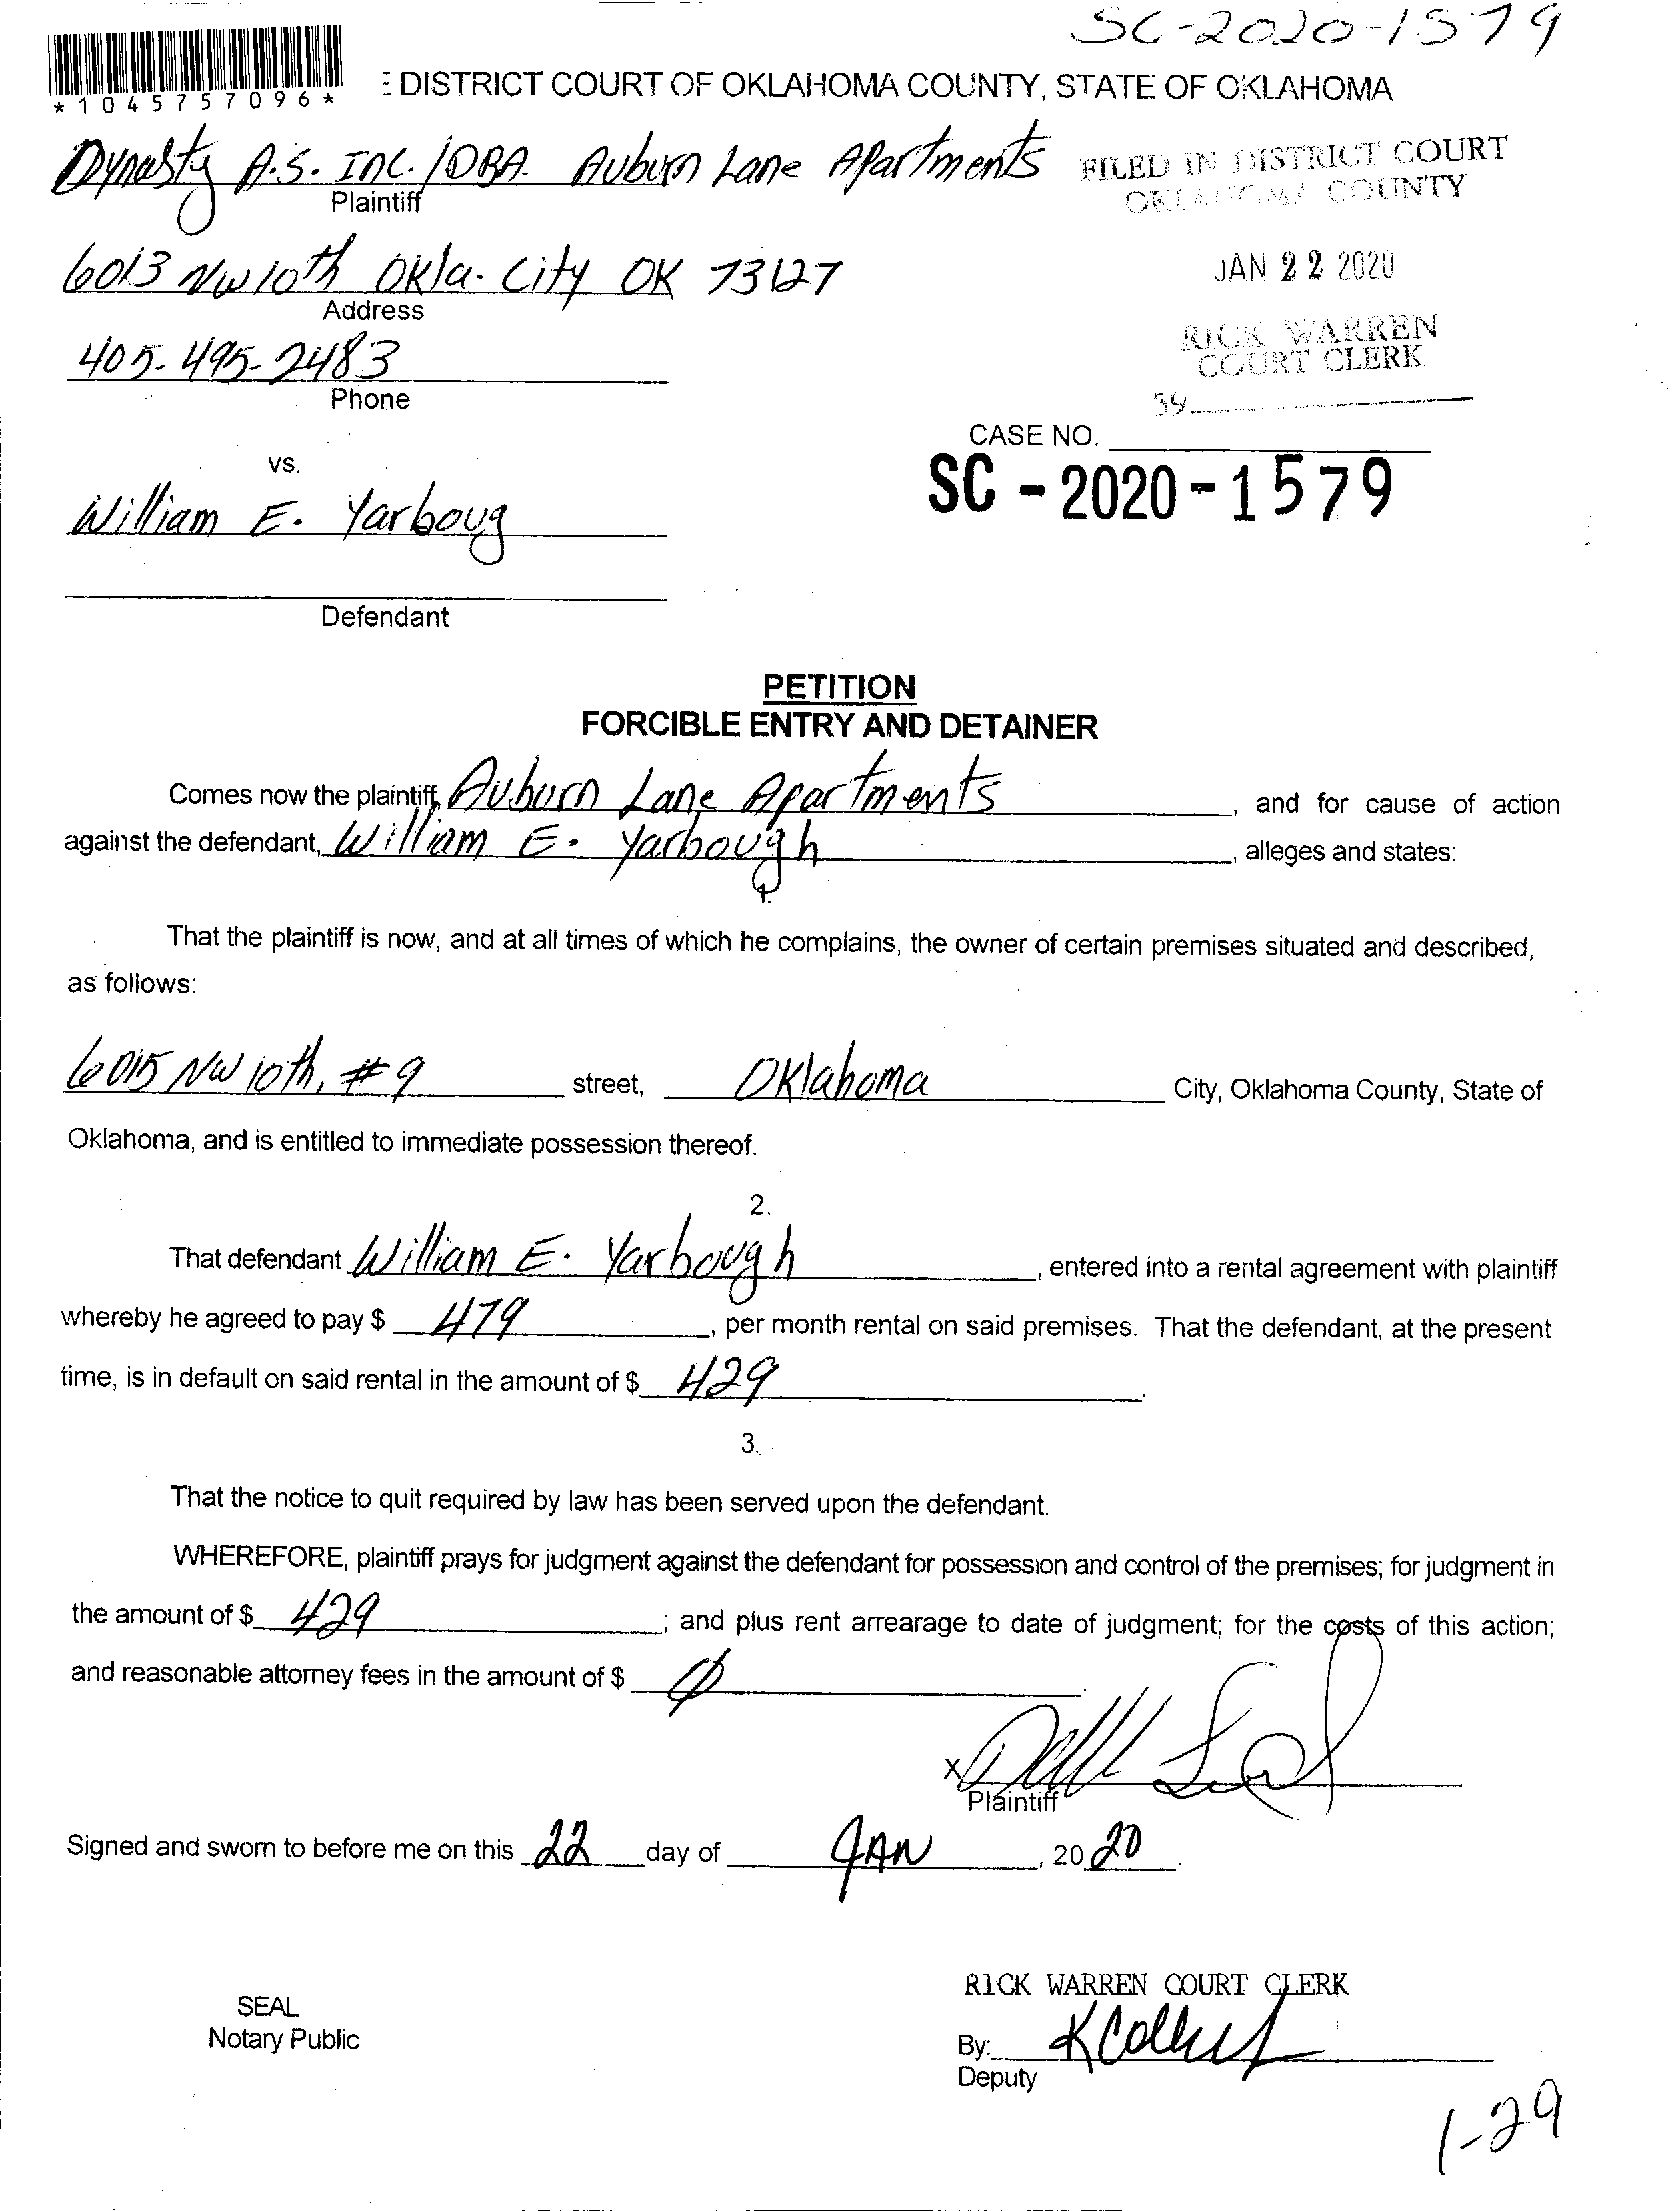 SC-2020-1579
*1045757096*
E DISTRICT COURT OF OKLAHOMA COUNTY, STATE OF OKLAHOMA
Dynasty A.S. Inc. /DBA. Auburn Lane Apartments
Plaintiff
FILED IN DISTRICT COURT
OKLAHOMA COUNTY
6013 NW 10th Okla. City OK 73127
Address
JAN 22 2020
405-495-2483
Phone
RICK WARREN
COURT CLERK
34
CASE NO.
SC - 2020 - 1579
VS.
William E. Yarboug
Defendant
PETITION
FORCIBLE ENTRY AND DETAINER
Comes now the plaintiff, Auburn Lane Apartments, and for cause of action
against the defendant, William E. Yarbough, alleges and states:
1.
That the plaintiff is now, and at all times of which he complains, the owner of certain premises situated and described,
as follows:
6015 NW 10th, #9 street, Oklahoma City, Oklahoma County, State of
Oklahoma, and is entitled to immediate possession thereof.
2.
That defendant William E. Yarbough, entered into a rental agreement with plaintiff
whereby he agreed to pay $ 479, per month rental on said premises. That the defendant, at the present
time, is in default on said rental in the amount of $ 429.
3.
That the notice to quit required by law has been served upon the defendant.
WHEREFORE, plaintiff prays for judgment against the defendant for possession and control of the premises; for judgment in
the amount of $ 429; and plus rent arrearage to date of judgment; for the costs of this action;
and reasonable attorney fees in the amount of $ 0.
X
Plaintiff
Signed and sworn to before me on this 22 day of JAN, 2020.
RICK WARREN COURT CLERK
SEAL
Notary Public
By:
Deputy
1-29